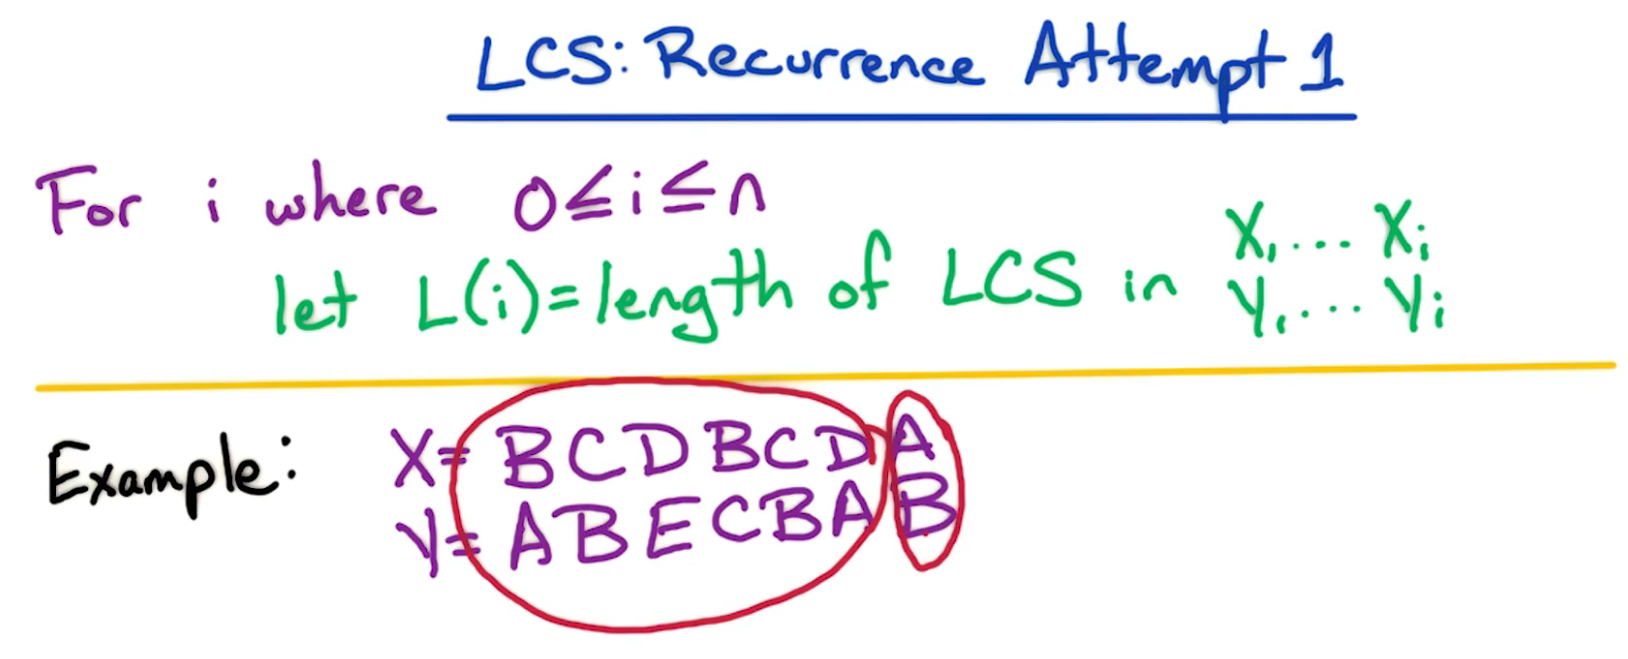 LCS: Recurrence Attempt 1
For i where 0≤i≤n
let L(i)=length of LCS in X₁....Xᵢ
Y₁....Yᵢ
Example: X= BCDBCDA
Y= ABECBAB